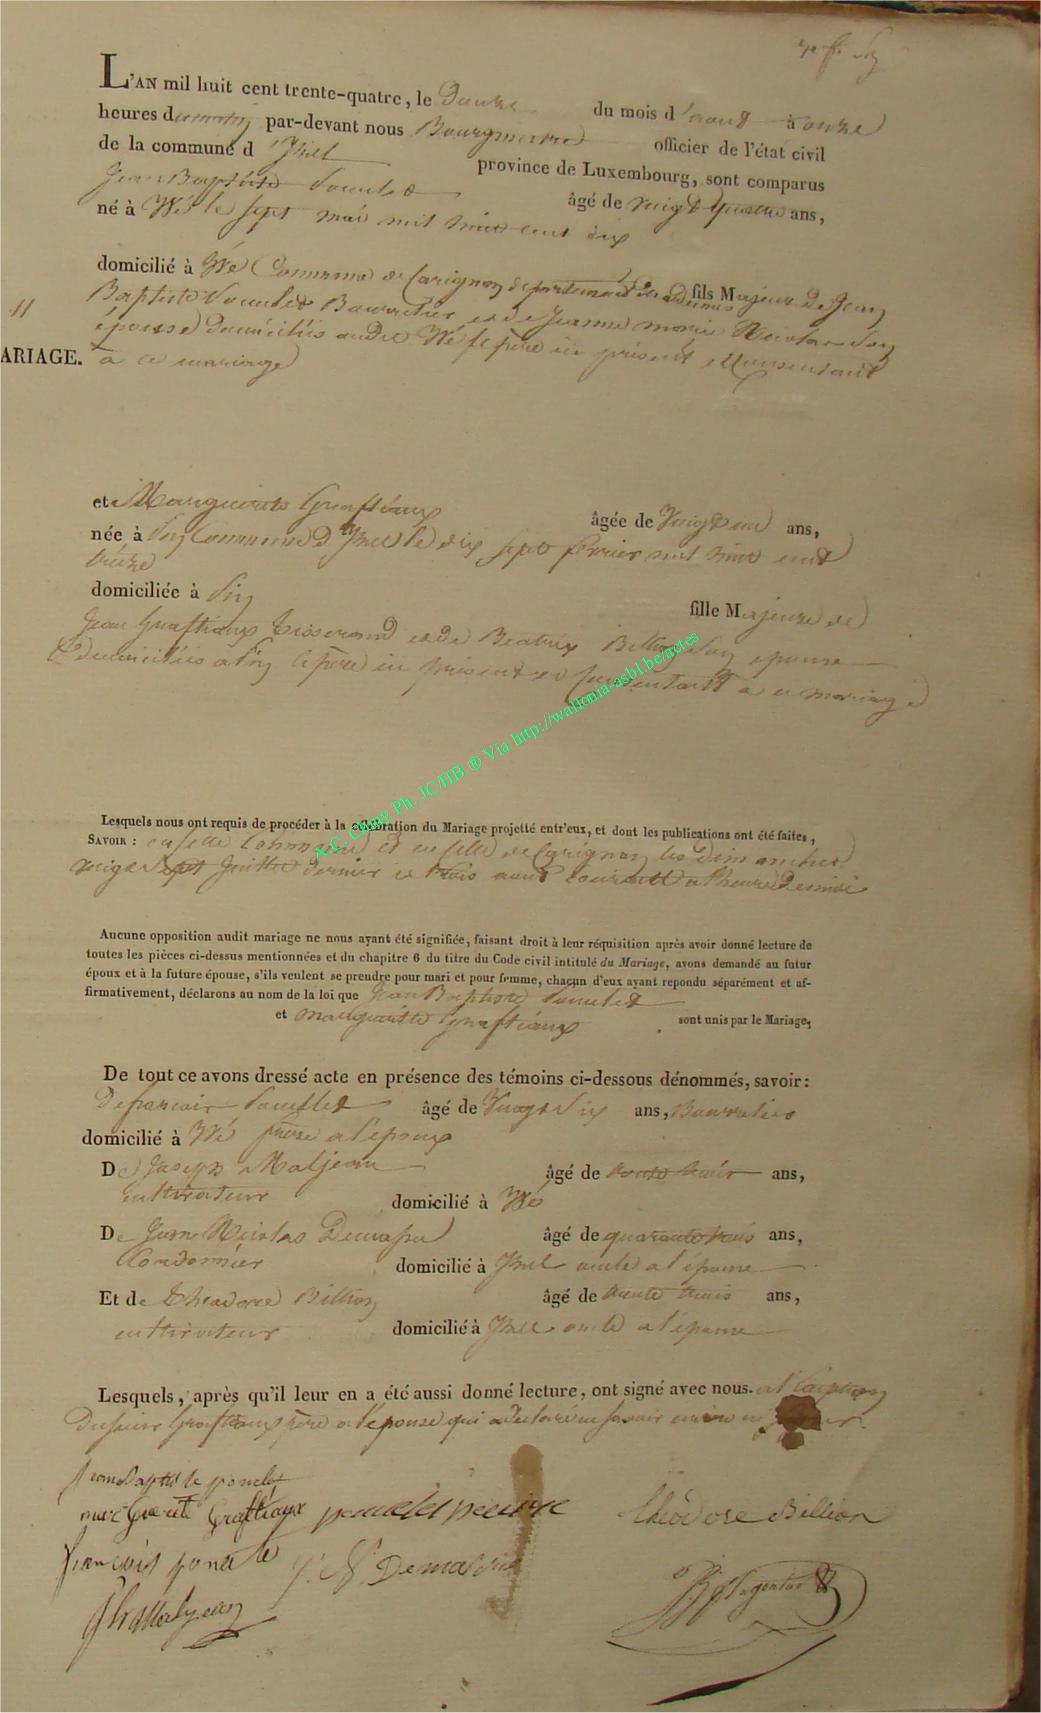 L'AN mil huit cent trente-quatre, le douze du mois d'aout à onze
heures du matin par-devant nous Bourgmestre officier de l'état civil
de la commune d'Izel province de Luxembourg, sont comparus
Jean Baptiste âgé de vingt quatre ans,
né à Wé le sept mai mil huit cent dix
domicilié à Wé Commune de Carignan département des ardennes fils Majeur de Jean
Baptiste Bourrelier et de Jeanne marie Nicolas son
épouse domiciliés audit Wé le père ici présent et consentant
MARIAGE. à ce mariage
et Marguerite Graftiaux âgée de vingt un ans,
née à Pin Commune d'Izel le dix sept février mil huit cent
treize
domiciliée à Pin fille Majeure de
Jean Graftiaux Tisserand et de Beatrix Billion son epouse
domiciliés a Pin le père ici présent et consentant a ce mariage
Lesquels nous ont requis de procéder à la célébration du Mariage projetté entr'eux, et dont les publications ont été faites,
SAVOIR : en cette Commune et en celle de Carignan les dimanches
vingt sept Juillet dernier et trois aout courant a l'heure de midi
Aucune opposition audit mariage ne nous ayant été signifiée, faisant droit à leur réquisition après avoir donné lecture de
toutes les pièces ci-dessus mentionnées et du chapitre 6 du titre du Code civil intitulé du Mariage, avons demandé au futur
époux et à la future épouse, s'ils veulent se prendre pour mari et pour femme, chacun d'eux ayant repondu séparément et af-
firmativement, déclarons au nom de la loi que Jean Baptiste
et marguerite Graftiaux sont unis par le Mariage,
De tout ce avons dressé acte en présence des témoins ci-dessous dénommés, savoir:
De francois âgé de vingt six ans, Bourrelier
domicilié à Wé frère a l'epoux
De Joseph Maljean âgé de ans,
cultivateur domicilié à Wé
De Jean Nicolas âgé de quarante trois ans,
Cordonnier domicilié à Izel oncle a l'épouse
Et de Theodore Billion âgé de trente trois ans,
cultivateur domicilié à Izel oncle a l'épouse
Lesquels, après qu'il leur en a été aussi donné lecture, ont signé avec nous.
Du sieur Graftiaux père a l'épouse qui a declaré ne savoir
Marguerite Graftiaux
Théodore Billion
A.C. Chiny Ph. JC/HB ® Via http://wallonia-asbl.be/actes